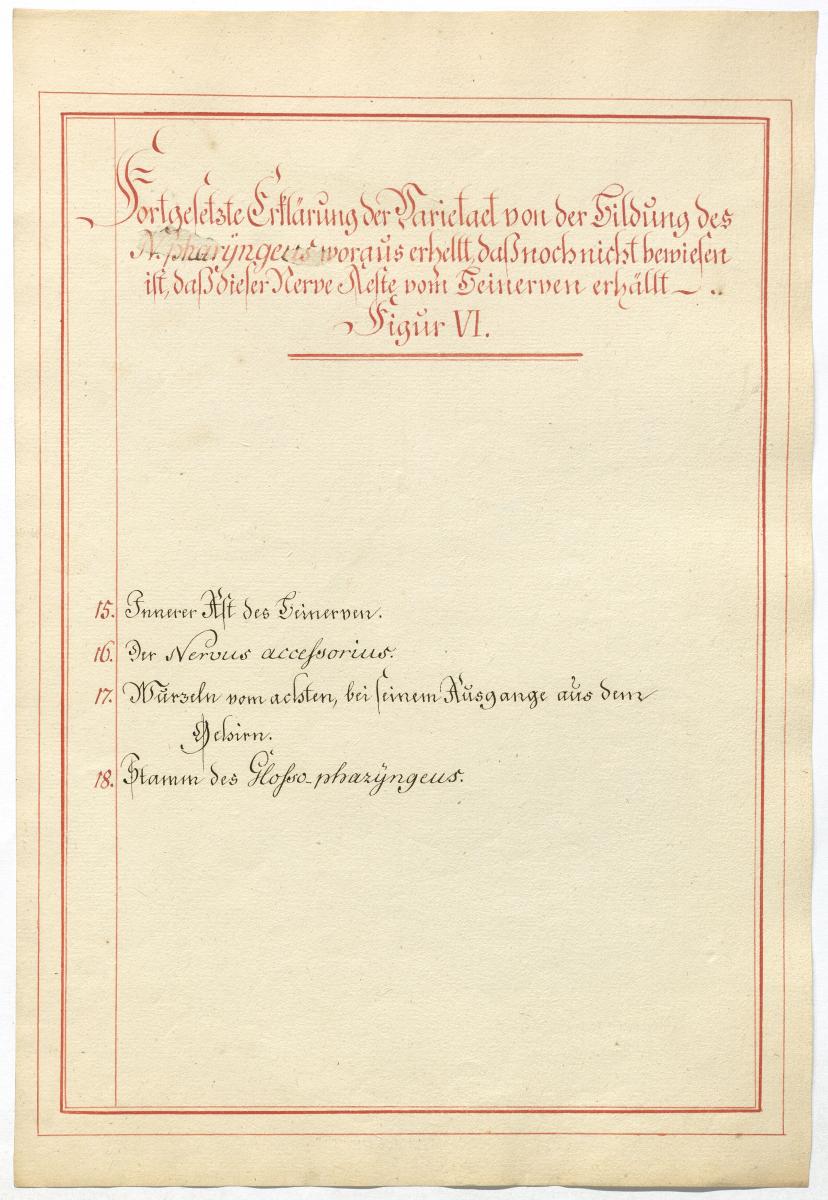 Fortgesetzte Erklärung der Varietaet von der Bildung des
N. pharÿngeus woraus erhellt, daß noch nicht bewiesen
ist, daß dieser Nerve Aeste vom Beinerven erhällt — ..
Figur VI.
15. Innerer Ast des Beinerven.
16. Der Nervus accessorius.
17. Wurzeln vom achten, bei seinem Ausgange aus dem
Gehirn.
18. Stamm des Glosso-pharÿngeus.